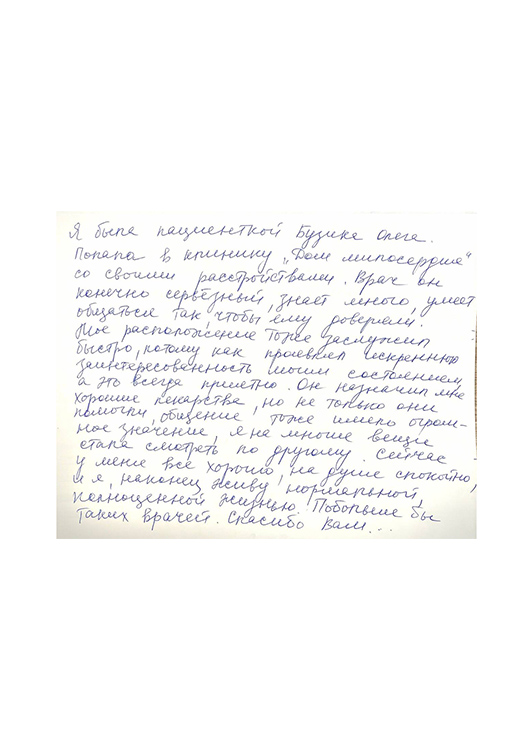 Я была пациенткой Бузика Олега.
Попала в клинику „Дом милосердия"
со своими расстройствами. Врач он
конечно серьёзный, знает много, умеет
общаться так, чтобы ему доверяли.
Моё расположение тоже заслужил
быстро, потому как проявлял искреннюю
заинтересованность моим состоянием,
а это всегда приметно. Он назначил мне
хорошие лекарства, но не только они
помогли, общение тоже имело огром-
ное значение, я на многие вещи
стала смотреть по другому. Сейчас
у меня всё хорошо, на душе спокойно,
и я, наконец, живу нормальной,
полноценной жизнью. Побольше бы
таких врачей. Спасибо Вам...